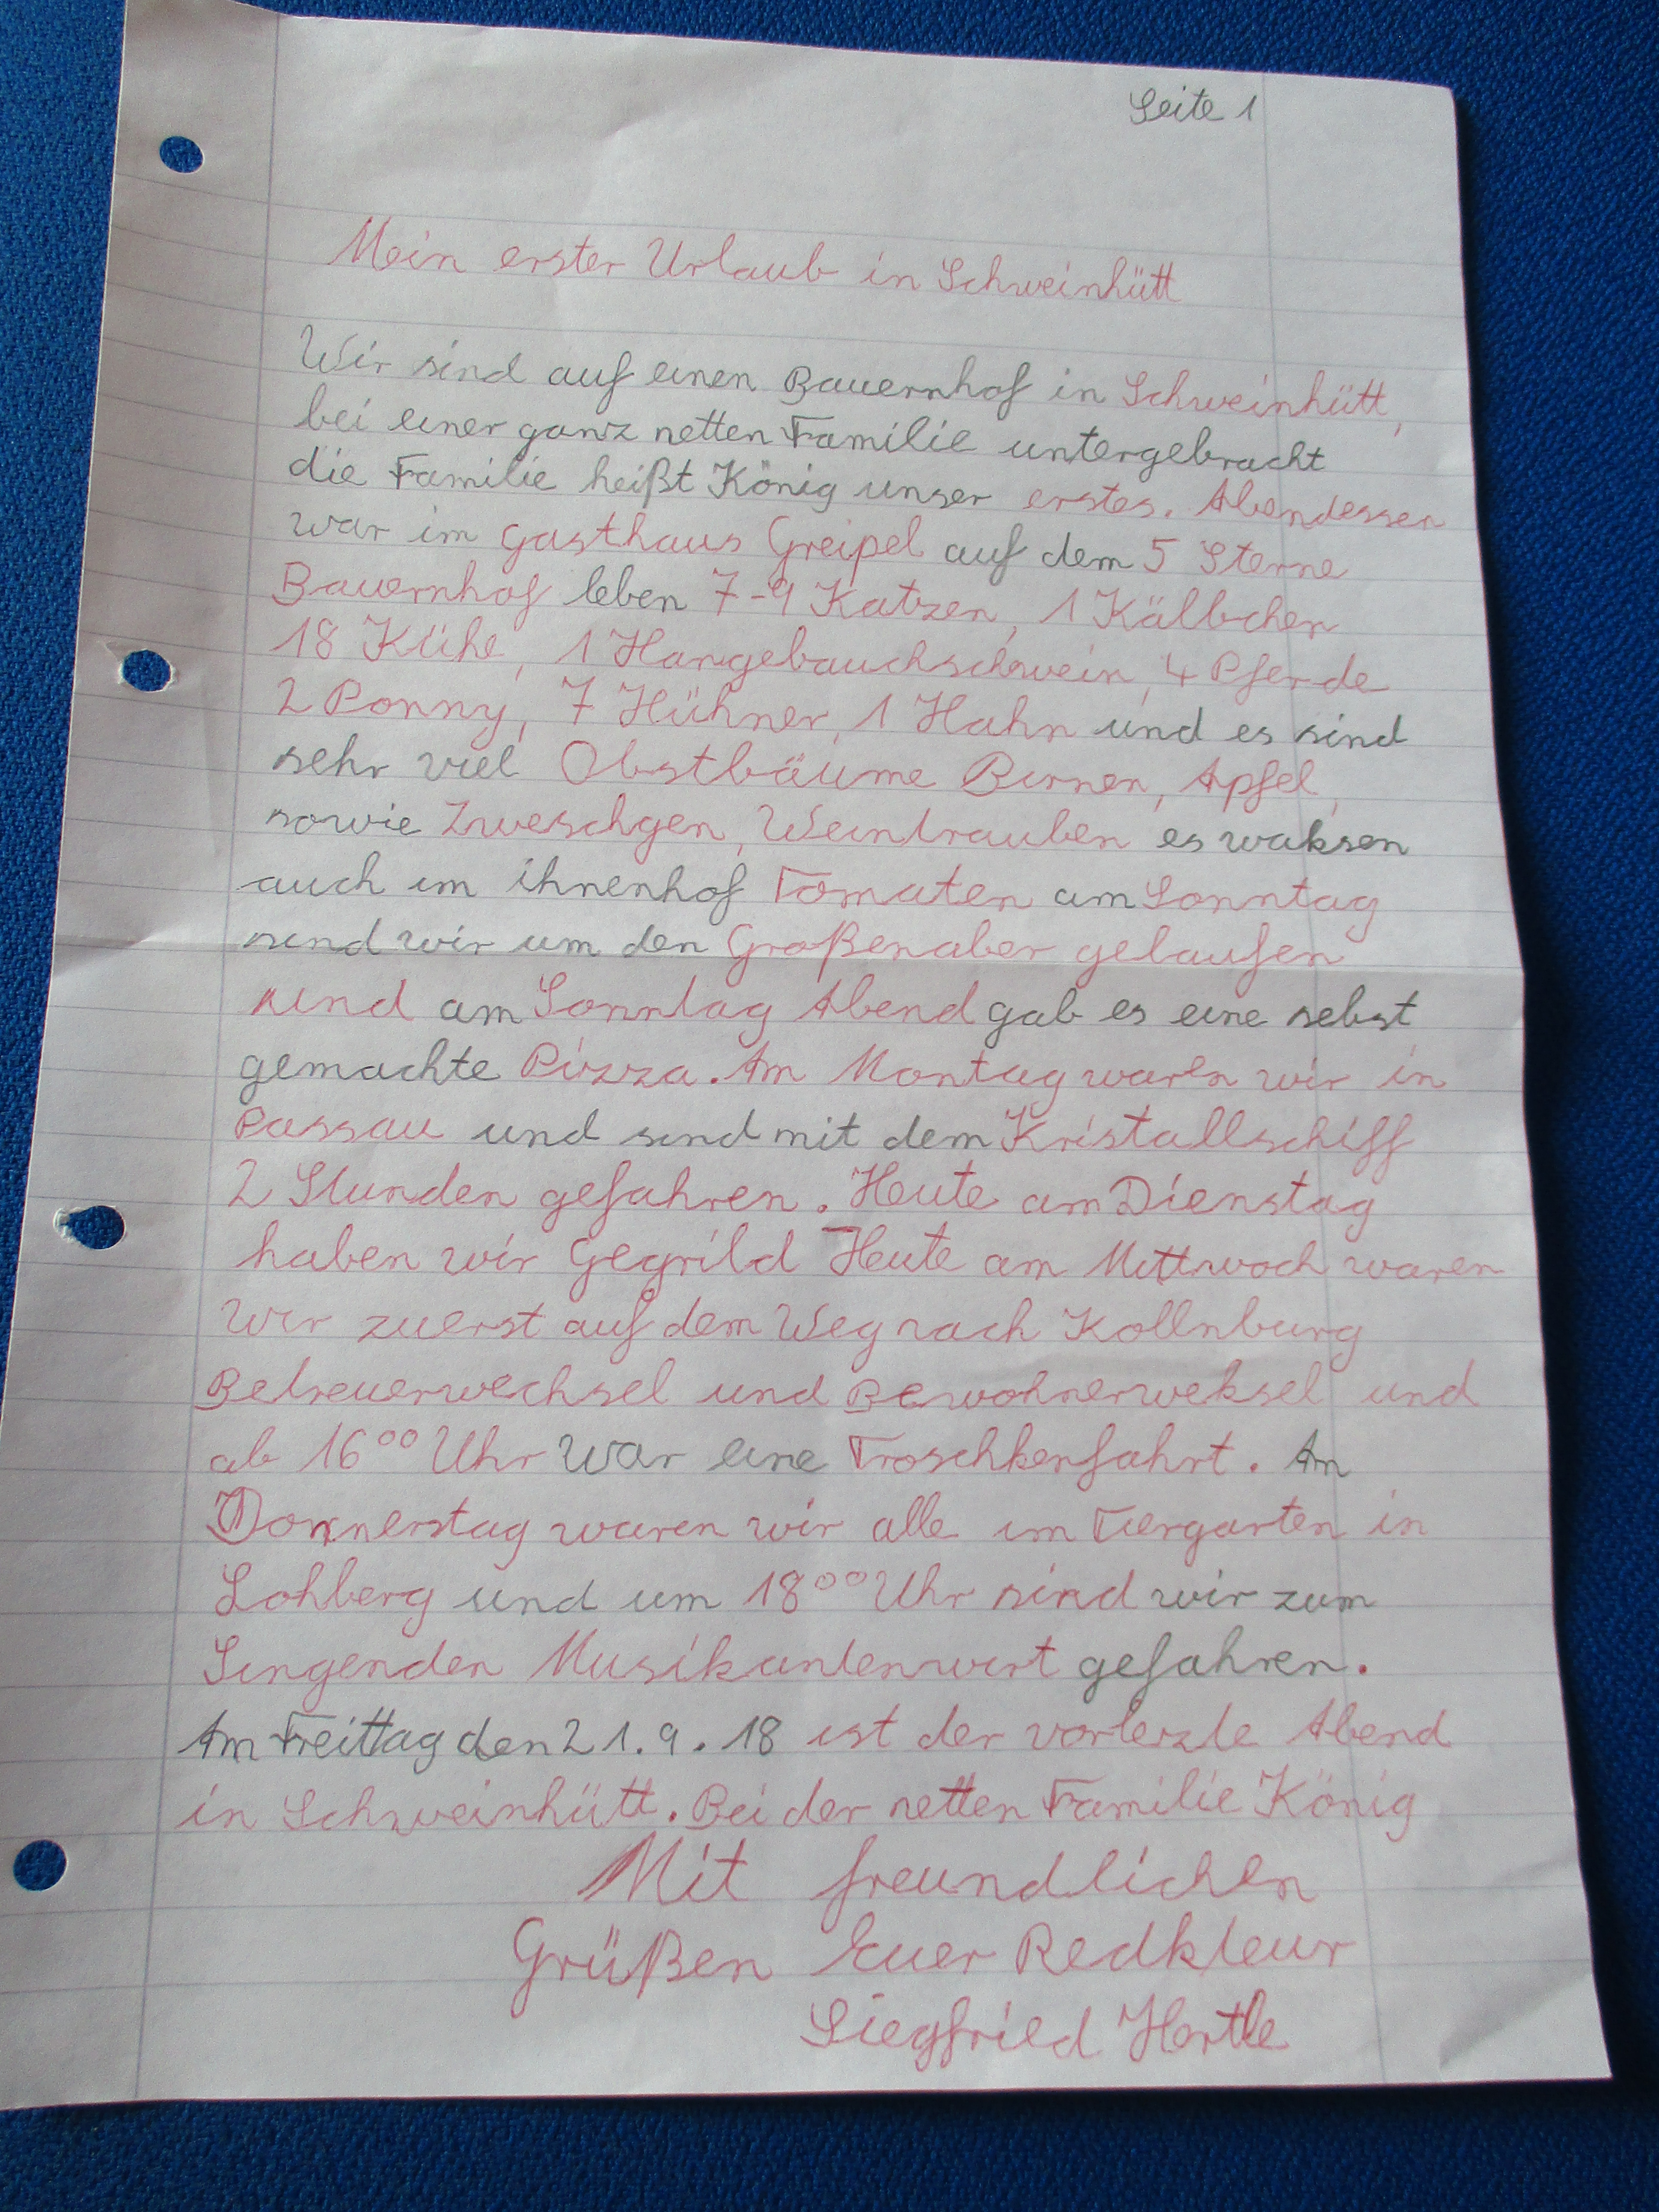 Seite 1
Mein erster Urlaub in Schweinhütt
Wir sind auf einen Bauernhof in Schweinhütt,
bei einer ganz netten Familie untergebracht
die Familie heißt König unser erstes. Abendessen
war im Gasthaus Greipel auf dem 5 Sterne
Bauernhof leben 7-9 Katzen, 1 Kälbchen
18 Kühe, 1 Hangebauchschwein, 4 Pferde
2 Ponny, 7 Hühner, 1 Hahn und es sind
sehr viel Obstbäume Birnen, Apfel,
sowie Zweschgen, Weintrauben es waksen
auch im ihnenhof Tomaten am Sonntag
sind wir um den Großenaber gelaufen
und am Sonntag Abend gab es eine sebst
gemachte Pizza. Am Montag waren wir in
Passau und sind mit dem Kristallschiff
2 Stunden gefahren. Heute am Dienstag
haben wir Gegrild Heute am Mittwoch waren
wir zuerst auf dem Weg nach Kollnburg
Betreuerwechsel und Bewohnerweksel und
ab 16°° Uhr war eine Troschkenfahrt. Am
Donnerstag waren wir alle im Tiergarten in
Lohberg und um 18°° Uhr sind wir zum
Singenden Musikantenwirt gefahren.
Am Freittag den 21.9.18 ist der vorlezte Abend
in Schweinhütt. Bei der netten Familie König
Mit freundlichen
Grüßen Euer Redkteur
Siegfried Hertle